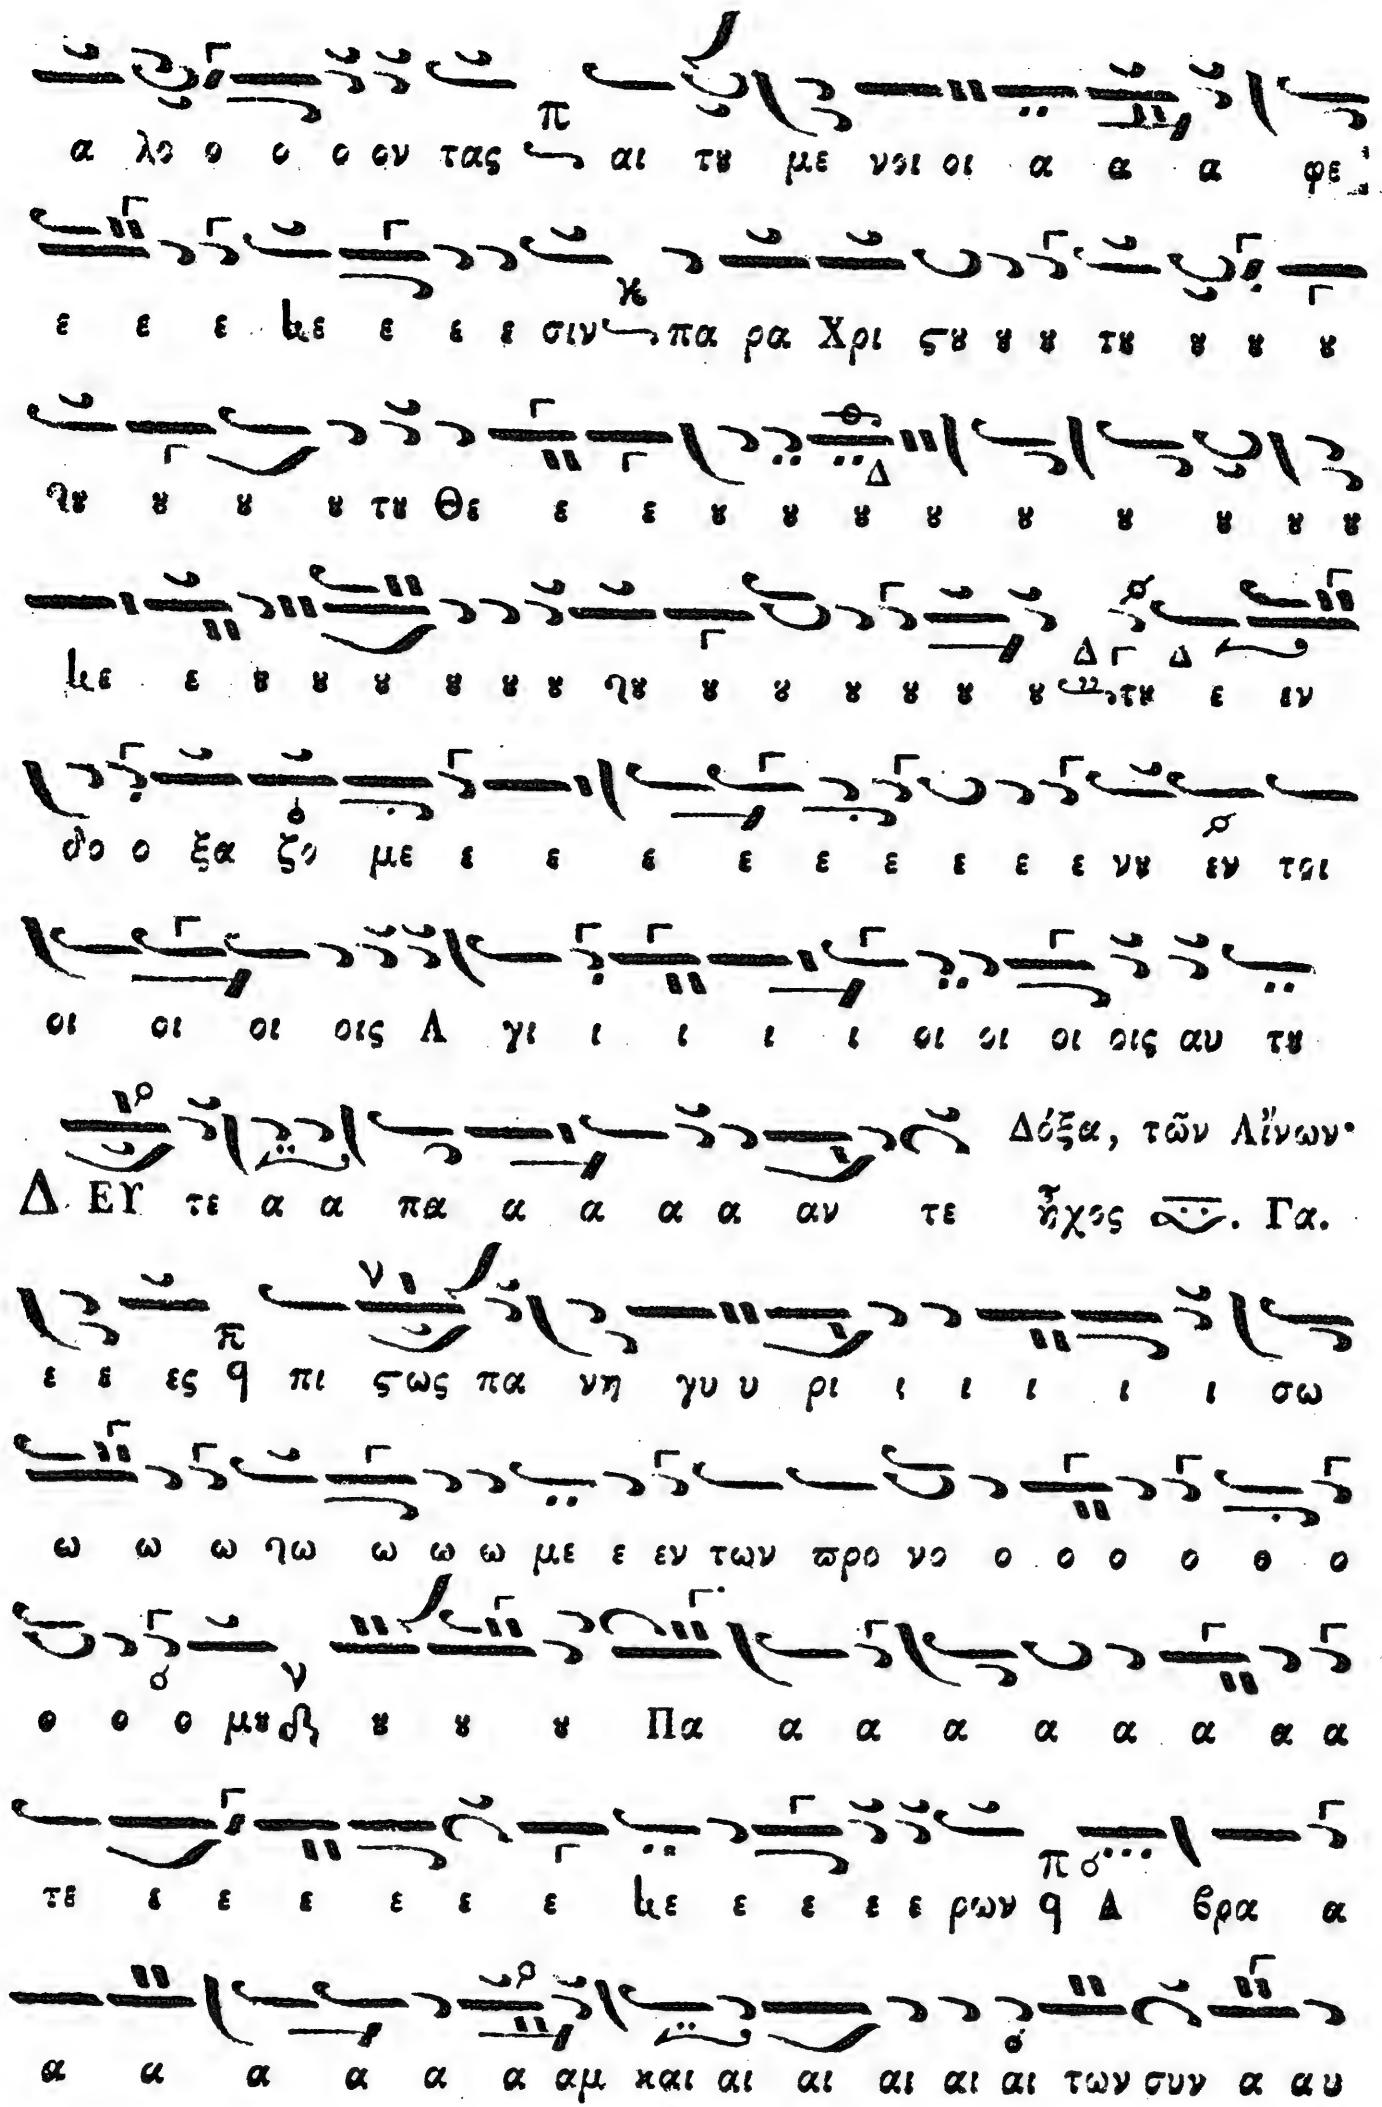 α λο ο ο ο ον τας αι τȣ με νοι οι α α α φε
ε ε ε κε ε ε ε σιν πα ρα Χρι ϛȣ ȣ ȣ τȣ ȣ ȣ ȣ
ȣ ȣ ȣ τȣ Θε ε ε ȣ ȣ ȣ ȣ ȣ ȣ ȣ ȣ ȣ
κε ε ȣ ȣ ȣ ȣ ȣ ȣ ȣ ȣ ȣ ȣ ȣ ȣ τȣ ε εν
δο ο ξα ζο με ε ε ε ε ε ε ε ε ε νȣ εν τοι
οι οι οι οις Α γι ι ι ι ι οι οι οι οις αυ τȣ
Δόξα, τῶν Αἴνων·
Δ ΕΥ τε α α πα α α α α αν τε ἦχος Γα.
ε ε ες π q πι ϛως πα νη γυ υ ρι ι ι ι ι ι σω
ω ω ω ω ω ω με ε εν των ϖρο νο ο ο ο ο ο ο
ο ο ο μȣ ȣ ȣ ȣ Πα α α α α α α α α
τε ε ε ε ε ε ε κε ε ε ε ε ρων q Α βρα α
α α α α α α αμ και αι αι αι αι αι των συν α αυ